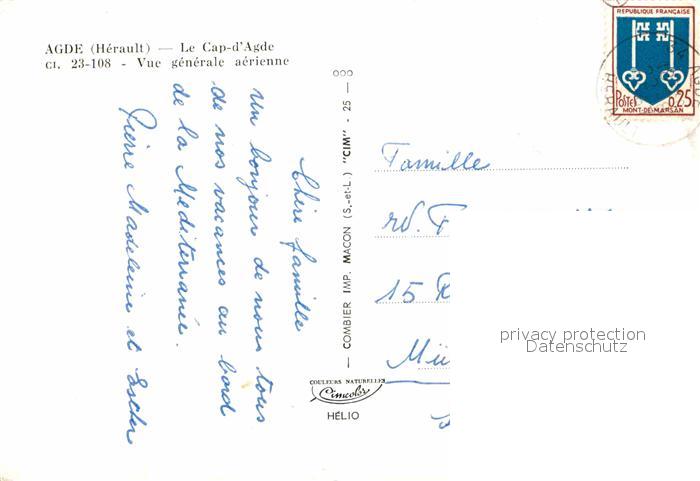 AGDE (Hérault) — Le Cap-d'Agde
CI. 23-108 - Vue générale aérienne
Chère famille
Un bonjour de nous tous
de nos vacances au bord
de la Méditerranée.
Pierre Madeleine et Escher
— COMBIER IMP. MACON (S.-et-L.) "CIM" - 25 —
COULEURS NATURELLES
Cimcolor
HÉLIO
REPUBLIQUE FRANÇAISE
POSTES 0,25
MONT-DE-MARSAN
Famille
15 R
Mü
privacy protection
Datenschutz